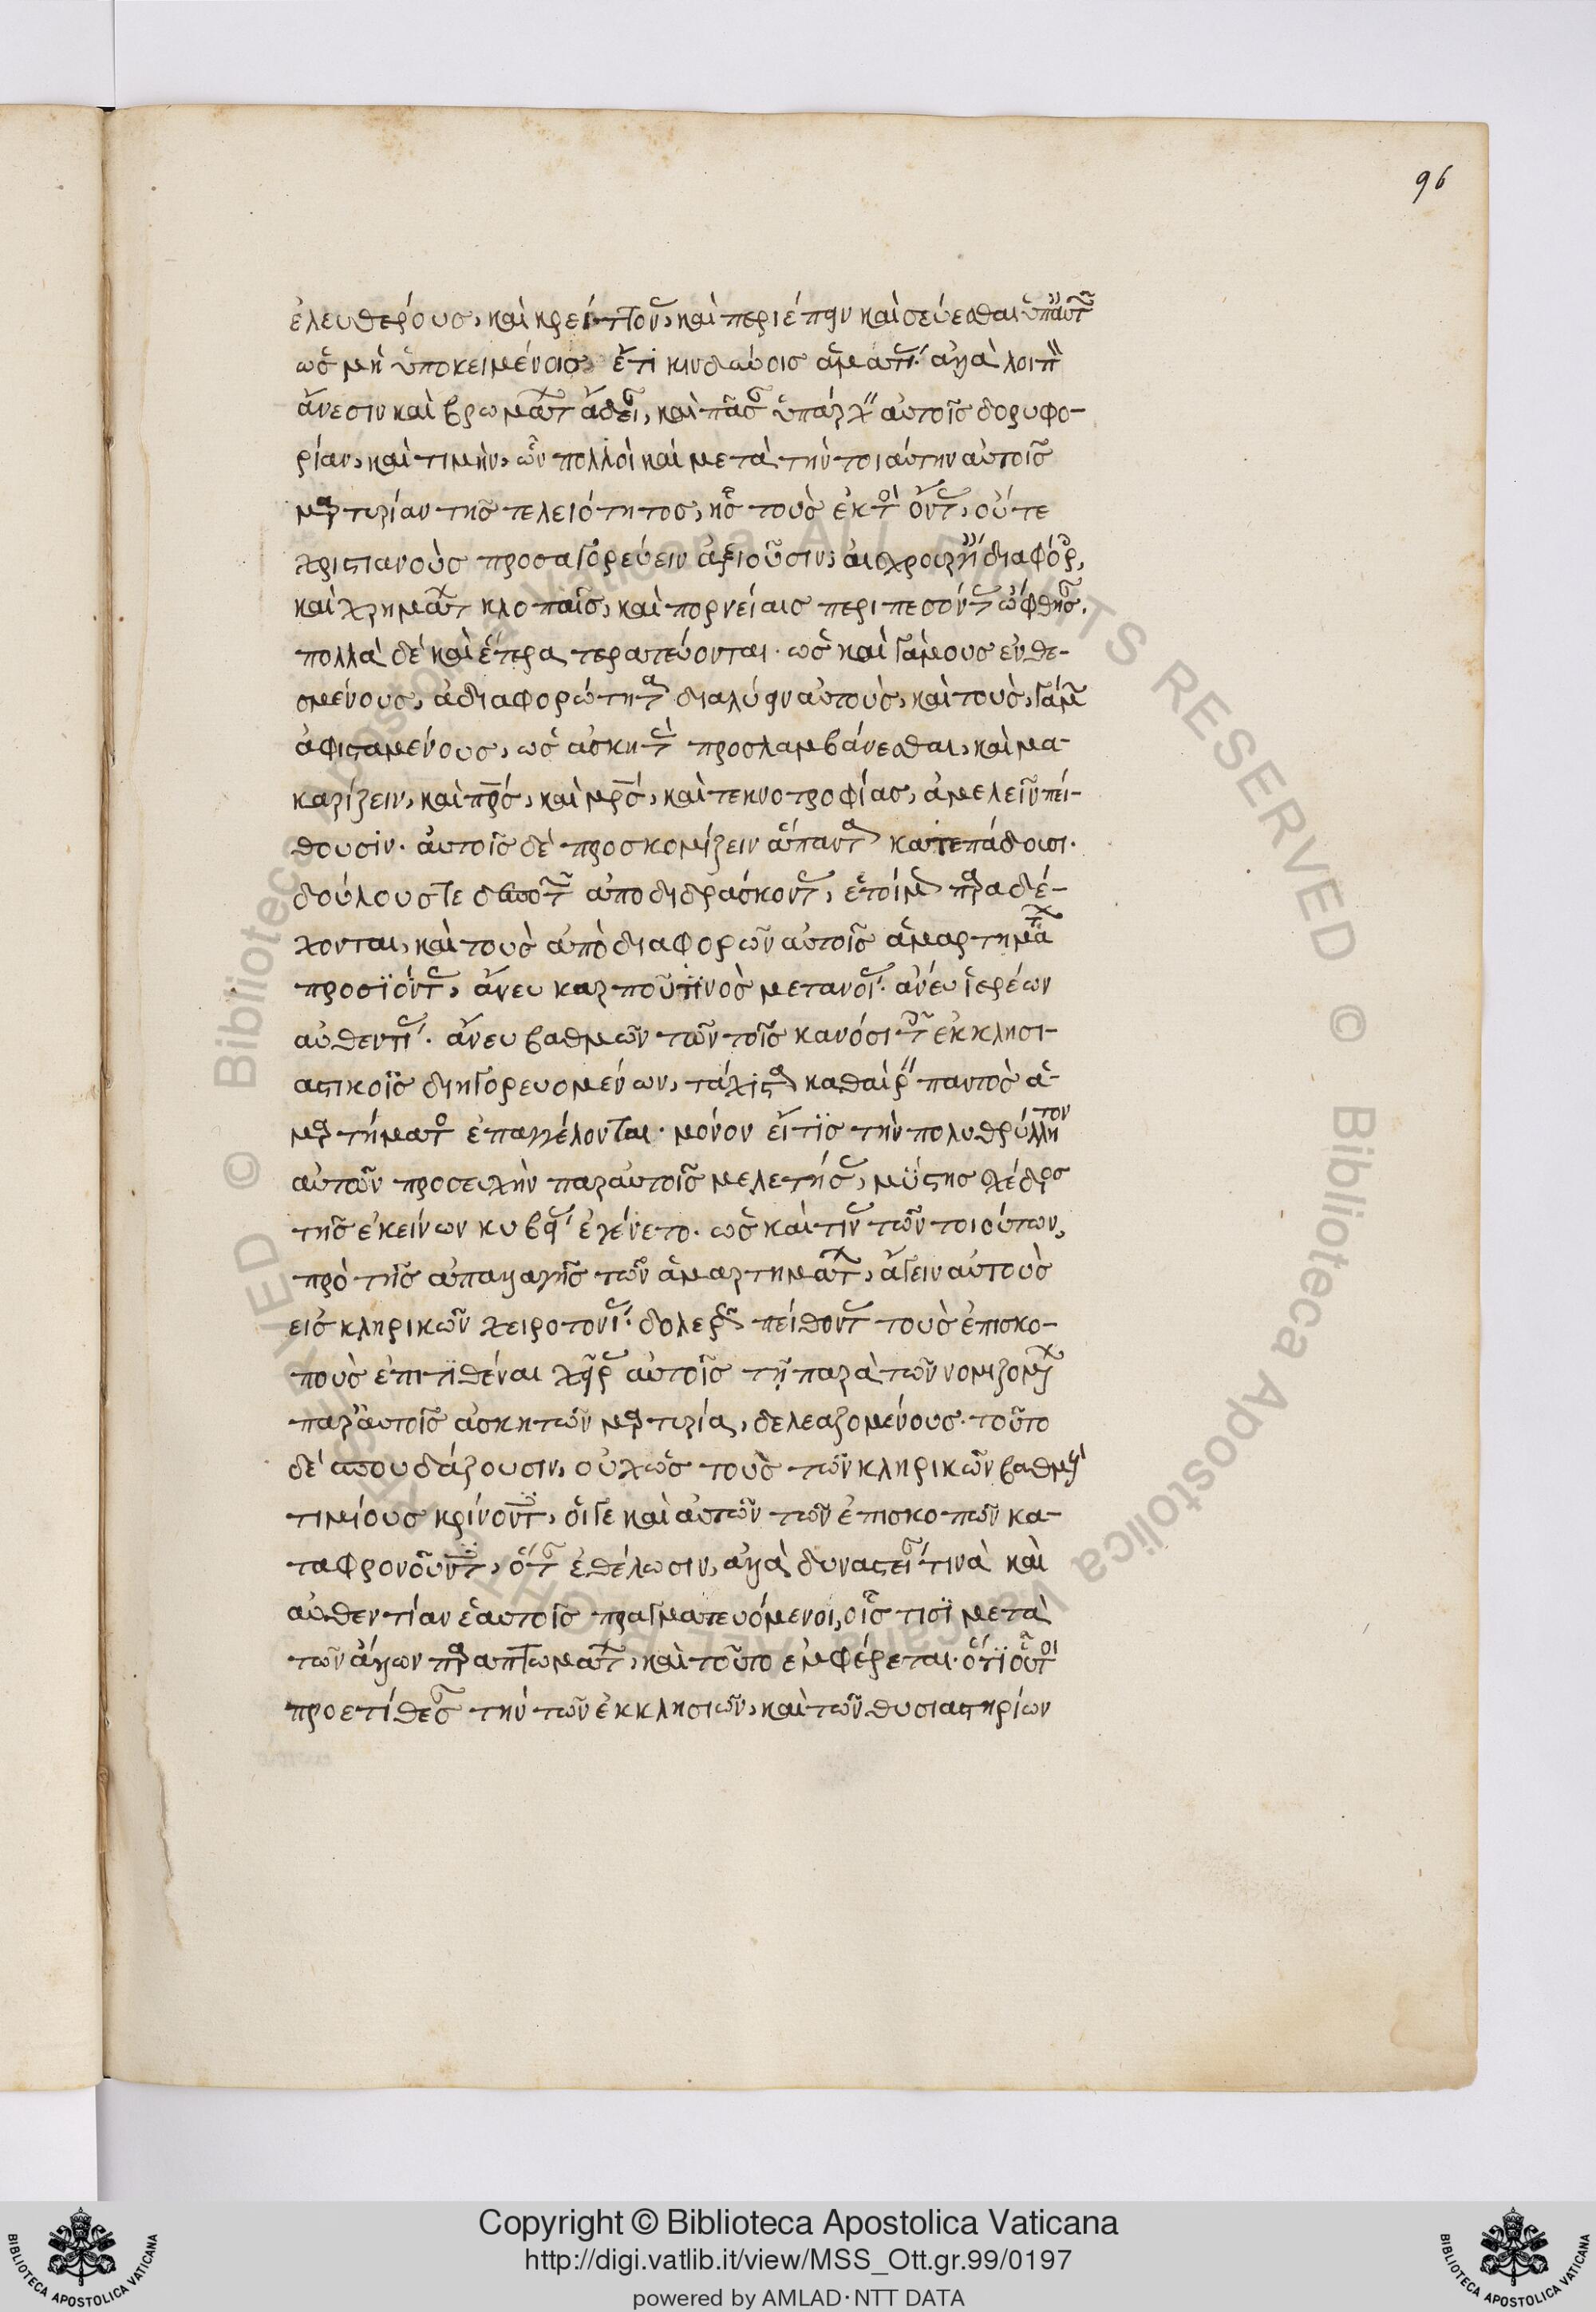 96
ἐλευθέρους, καὶ κρείττους, καὶ περιέπειν καὶ σέβεσθαι ὑπ' αὐτῶν
ὡς μὴ ὑποκειμένοις ἔτι κινδύνοις ἁμαρτίας· ἀλλὰ λοιπὸν
ἄνεσιν καὶ βρωμάτων ἄδειαν, καὶ πᾶσαν ὑπάρχειν αὐτοῖς δορυφο-
ρίαν, καὶ τιμήν, ὧν πολλοὶ καὶ μετὰ τὴν τοιαύτην αὐτοῖς
μαρτυρίαν τῆς τελειότητος, ἧς τοὺς ἐκτὸς ὄντας, οὔτε
χριστιανοὺς προσαγορεύειν ἀξιοῦσιν, αἰσχρουργίαις διαφόροις,
καὶ χρημάτων κλοπαῖς, καὶ πορνείαις περιπεσόντες ὤφθησαν.
πολλὰ δὲ καὶ ἕτερα τερατεύονται· ὡς καὶ γάμους ἐνθέ-
σμένους, ἀδιαφορώτατα διαλύειν αὐτοὺς, καὶ τοὺς, γάμων
ἀφισταμένους, ὡς ἀσκητὰς προσλαμβάνεσθαι, καὶ μα-
καρίζειν, καὶ πρς, καὶ μρς, καὶ τεκνοτροφίας, ἀμελεῖν πεί-
θουσιν. αὐτοῖς δὲ προσκομίζειν ἅπαντα κατεπάδουσι.
δούλους τε δεσποτῶν ἀποδιδράσκοντας, ἑτοίμως παραδέ-
χονται, καὶ τοὺς ἀπὸ διαφορῶν αὐτοῖς ἁμαρτημάτων
προσϊόντας, ἄνευ καρποῦ τινὸς μετανοίας. ἄνευ ἱερέων
αὐθεντίας. ἄνευ βαθμῶν τῶν τοῖς κανόσι τῶν ἐκκλησι-
αστικοῖς διηγορευομένων, τάχιστα καθαίρειν παντὸς ἁ-
μαρτήματος ἐπαγγέλονται. μόνον εἴ τις τὴν πολυθρύλλητον
αὐτῶν προσευχὴν παρ' αὐτοῖς μελετήσας, μύστης
τῆς ἐκείνων κυβείας ἐγένετο. ὡς καὶ τινὰς τῶν τοιούτων,
πρὸ τῆς ἀπαλλαγῆς τῶν ἁμαρτημάτων, ἄγειν αὐτοὺς
εἰς κληρικῶν χειροτονίας. δολερῶς πείθοντες τοὺς ἐπισκό-
πους ἐπιτιθέναι χεῖρας αὐτοῖς τῇ παρὰ τῶν νομιζομένων
παρ' αὐτοῖς ἀσκητῶν μαρτυρίᾳ, δελεαζομένους. τοῦτο
δὲ σπουδάζουσιν, οὐχ ὡς τοὺς τῶν κληρικῶν βαθμοὺς
τιμίους κρίνοντες, οἵγε καὶ αὐτῶν τῶν ἐπισκόπων κα-
ταφρονοῦντες, ὅταν ἐθέλωσιν, ἀλλὰ δυναστείαν τινὰ καὶ
αὐθεντίαν ἑαυτοῖς πραγματευόμενοι, οἷς τισὶ μετὰ
τῶν ἄλλων παραπτωμάτων, καὶ τοῦτο ἐμφέρεται. ὅτι οὗτοι
προετίθεσαν τὴν τῶν ἐκκλησιῶν, καὶ τῶν θυσιαστηρίων
Copyright © Biblioteca Apostolica Vaticana
http://digi.vatlib.it/view/MSS_Ott.gr.99/0197
powered by AMLAD·NTT DATA